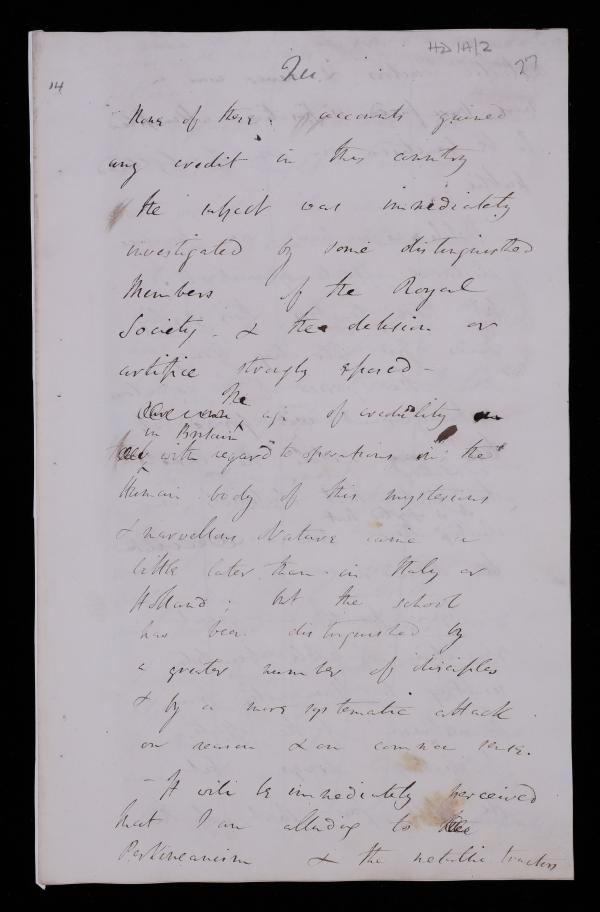 HD/1A/2
27
14
None of these accounts gained
any credit in this country
The subject was immediately
investigated by some distinguished
Members of the Royal
Society - & the delusion or
artifice strongly exposed -
The age of credulity
in Britain
with regard to operations in the
Human body of this mysterious
& marvellous Nature came a
little later than in Italy or
Holland; but the school
has been distinguished by
a greater number of disciples
& by a more systematic attack
on reason & on common sense.
- It will be immediately perceived
that I am alluding to the
Perkineanism & the metallic tractors